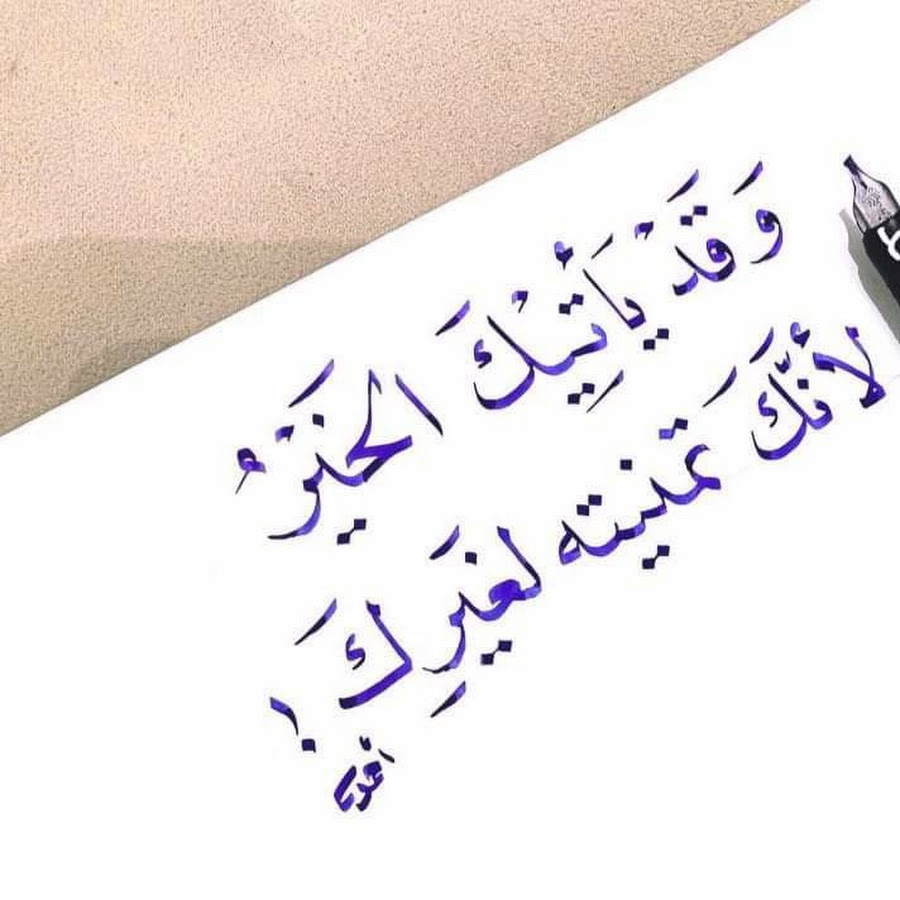 وَقَدْ يَأتِيْكَ الخَيْرُ
لأنَّكَ تَمنيته لغَيرِكَ !